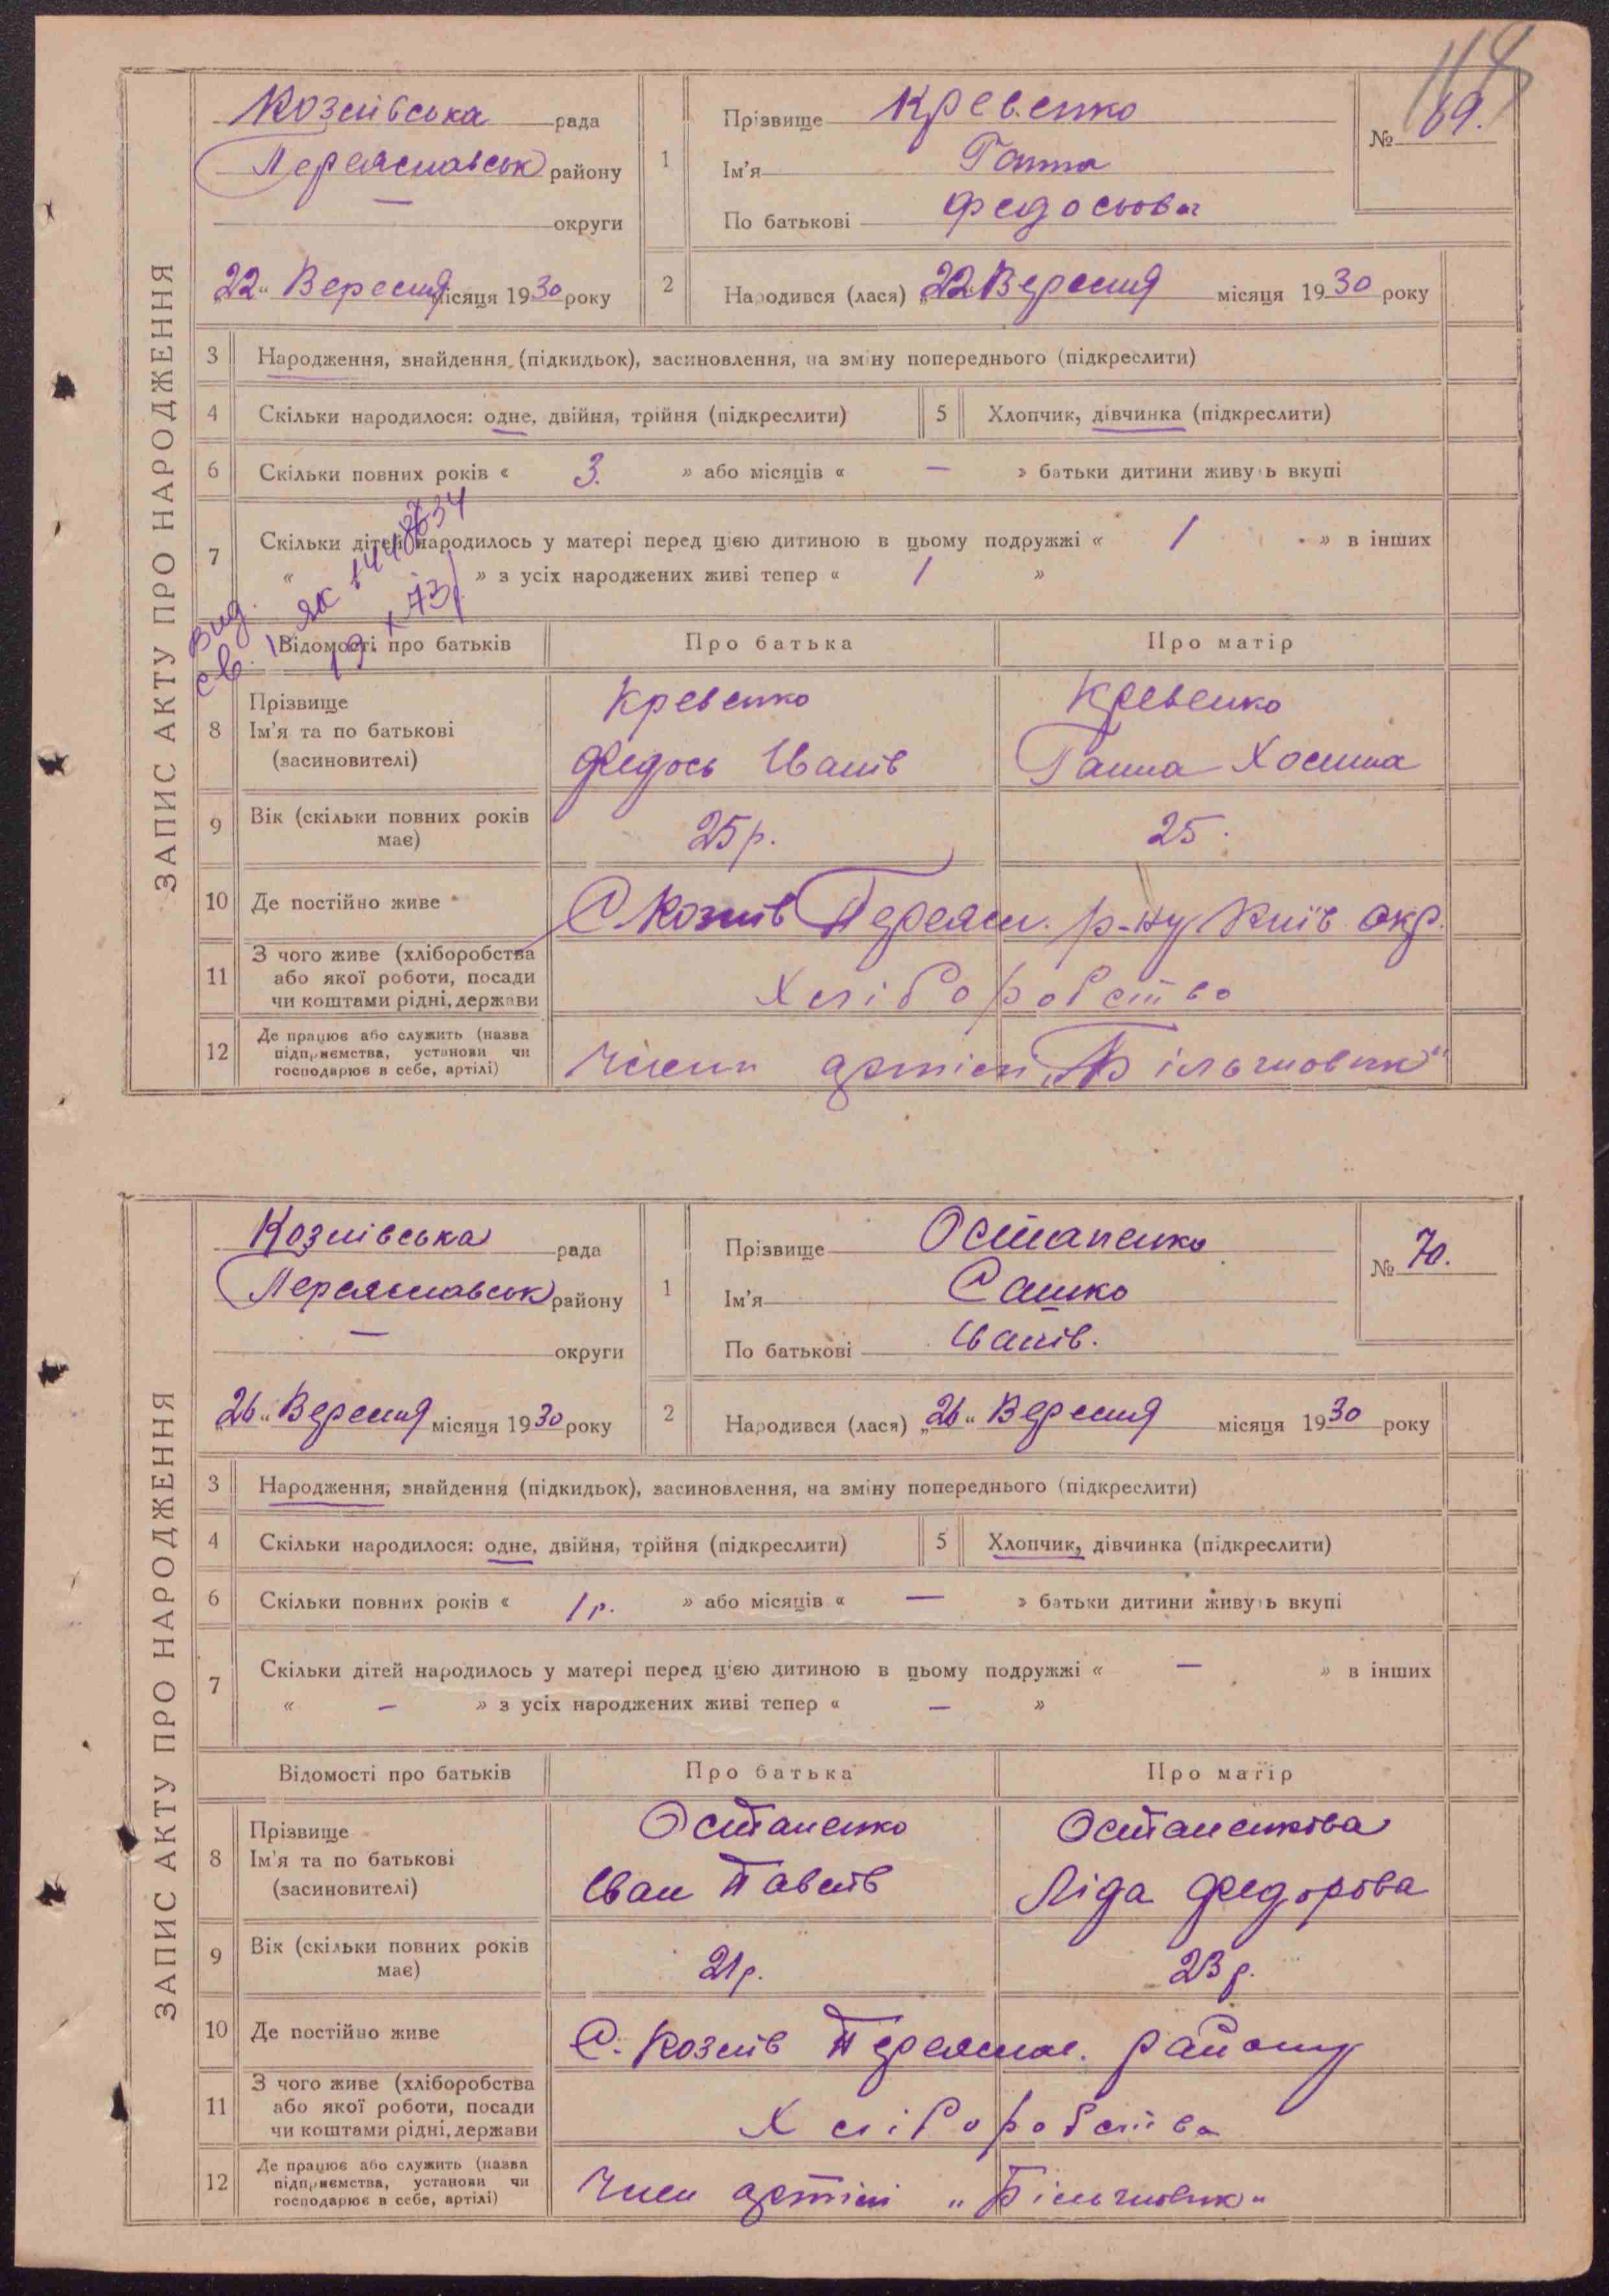 114
ЗАПИС АКТУ ПРО НАРОДЖЕННЯ
Козлівська рада
Переяславськ району
— округи
„22“ Вересня місяця 1930 року
1 Прізвище Кревенко
Ім'я Ганна
По батькові Федосьова
№ 69.
2 Народився (лася) „22“ Вересня місяця 1930 року
3 Народження, знайдення (підкидьок), засиновлення, на зміну попереднього (підкреслити)
4 Скільки народилося: одне, двійня, трійня (підкреслити)
5 Хлопчик, дівчинка (підкреслити)
6 Скільки повних років « 3. » або місяців « — » батьки дитини живуть вкупі
7 Скільки дітей народилось у матері перед цією дитиною в цьому подружжі « 1 » в інших
« » з усіх народжених живі тепер « 1 »
Вид.
св.
Відомості про батьків Про батька Про матір
8 Прізвище
Ім'я та по батькові
(засиновителі)
Кревенко
Федось Іванів
Кревенко
Ганна
9 Вік (скільки повних років
має)
25 р. 25.
10 Де постійно живе С Козлів Переясл. р-ну Київ окр.
11 З чого живе (хліборобства
або якої роботи, посади
чи коштами рідні, держави
Хліборобство
12 Де працює або служить (назва
підприємства, установи чи
господарює в себе, артілі)
Член артіли „Більшовик“
ЗАПИС АКТУ ПРО НАРОДЖЕННЯ
Козлівська рада
Переяславськ району
— округи
„26“ Вересня місяця 1930 року
1 Прізвище Остапенко
Ім'я Сашко
По батькові Іванів.
№ 70.
2 Народився (лася) „26“ Вересня місяця 1930 року
3 Народження, знайдення (підкидьок), засиновлення, на зміну попереднього (підкреслити)
4 Скільки народилося: одне, двійня, трійня (підкреслити)
5 Хлопчик, дівчинка (підкреслити)
6 Скільки повних років « 1 р. » або місяців « — » батьки дитини живуть вкупі
7 Скільки дітей народилось у матері перед цією дитиною в цьому подружжі « — » в інших
« — » з усіх народжених живі тепер « — »
Відомості про батьків Про батька Про матір
8 Прізвище
Ім'я та по батькові
(засиновителі)
Остапенко
Іван Павлів
Остапенкова
Ліда Федорова
9 Вік (скільки повних років
має)
21 р. 23 р.
10 Де постійно живе С. Козлів Переяслав. району
11 З чого живе (хліборобства
або якої роботи, посади
чи коштами рідні, держави
Хліборобства
12 Де працює або служить (назва
підприємства, установи чи
господарює в себе, артілі)
Член артілі „Більшовик“